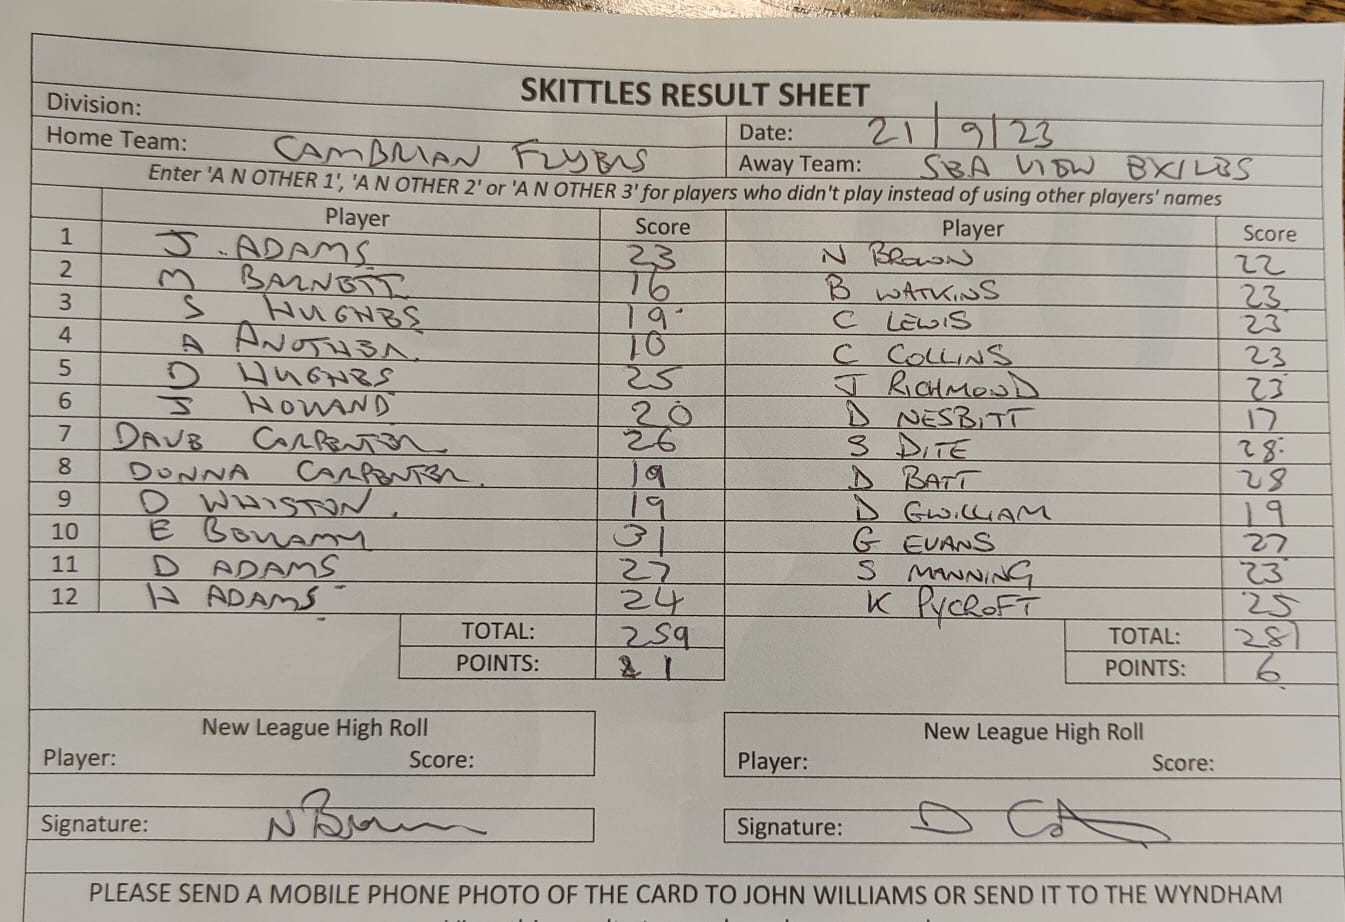 SKITTLES RESULT SHEET
Division:
Home Team: CAMBRIAN FLYERS Date: 21/9/23
Away Team: SEA VIEW EXILES
Enter 'A N OTHER 1', 'A N OTHER 2' or 'A N OTHER 3' for players who didn't play instead of using other players' names
Player Score Player Score
1 J. ADAMS 23 N BROWN 22
2 M BARNETT 16 B WATKINS 23
3 S HUGHES 19 C LEWIS 23
4 A ANOTHER 10 C COLLINS 23
5 D HUGHES 25 J RICHMOND 23
6 J HOLLAND 20 D NESBITT 17
7 DAVE CARPENTER 26 S DITE 28
8 DONNA CARPENTER 19 D BATT 28
9 D WHISTON 19 D GWILLIAM 19
10 E BELLAMY 31 G EVANS 27
11 D ADAMS 27 S MANNING 23
12 H ADAMS 24 K PYCROFT 25
TOTAL: 259 TOTAL: 281
POINTS: 1 POINTS: 6
New League High Roll New League High Roll
Player: Score: Player: Score:
Signature: N Brown Signature: D
PLEASE SEND A MOBILE PHONE PHOTO OF THE CARD TO JOHN WILLIAMS OR SEND IT TO THE WYNDHAM